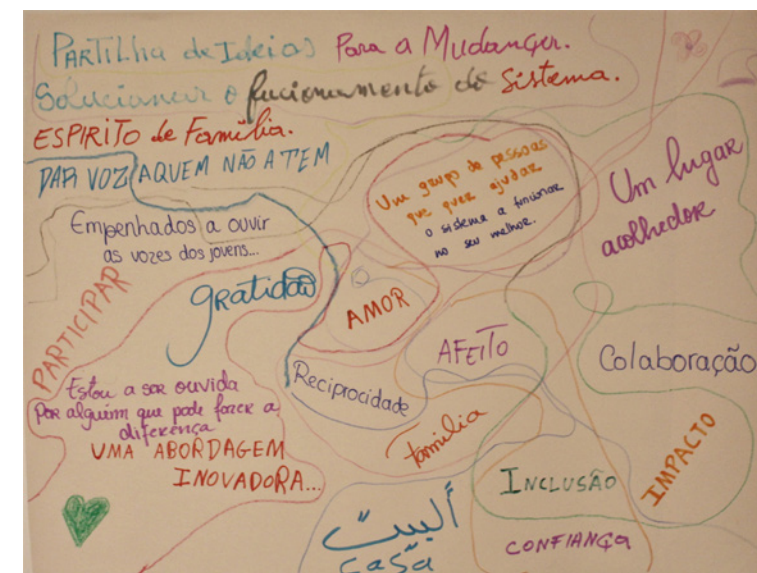 PARTILHA de Ideias Para a Mudançer.
Solucionar o fucionamento do sistema.
ESPIRITO de Família.
DAR VOZ AQUEM NÃO A TEM
Empenhados a ouvir
as vozes dos jovens...
Um grupo de pessoas
que quer ajudar
o sistema a funcionar
no seu melhor.
Um lugar
acolhedor
PARTICIPAR
gratidão
AMOR
AFEITO
Colaboração
Reciprocidade
Estou a ser ouvida
Por alguém que pode fazer a
diferença
UMA ABORDAGEM
INOVADORA...
família
INCLUSÃO
IMPACTO
ألبيت
casa
CONFIANÇA